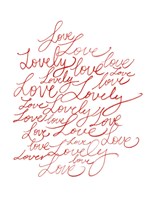 Love
Love Love
Lovely love
Lovely Love
Love love
Love Lovely
Love Lovely
Love Love Love
Love Love
love Love Love
Lover Lovely
love
Love